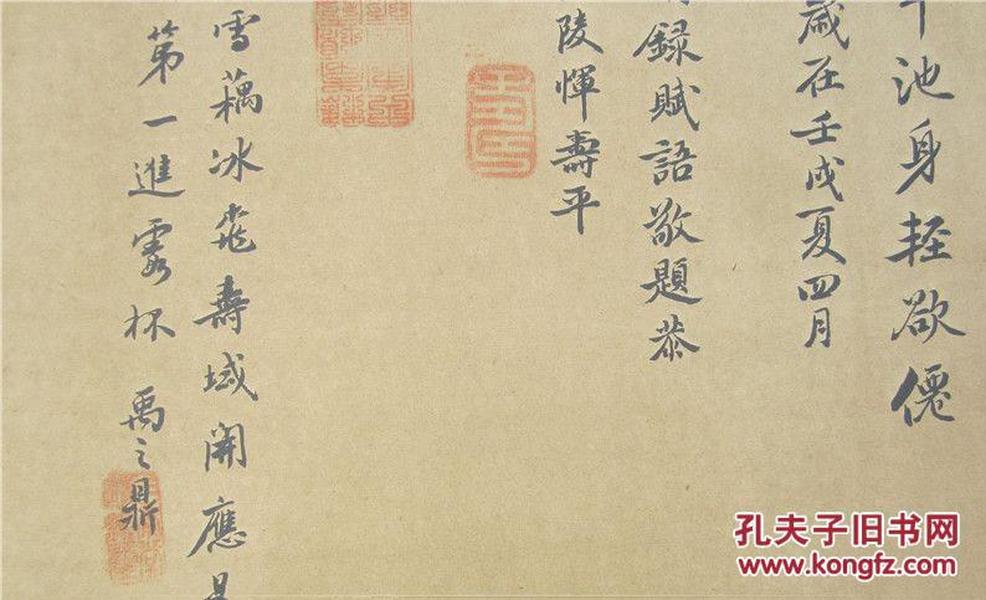 池身輕欲僊
歲在壬戌夏四月
錄賦語敬題恭
陵惲壽平
雪藕冰飛壽域開應
第一進霞杯 禹之鼎
孔夫子旧书网
www.kongfz.com